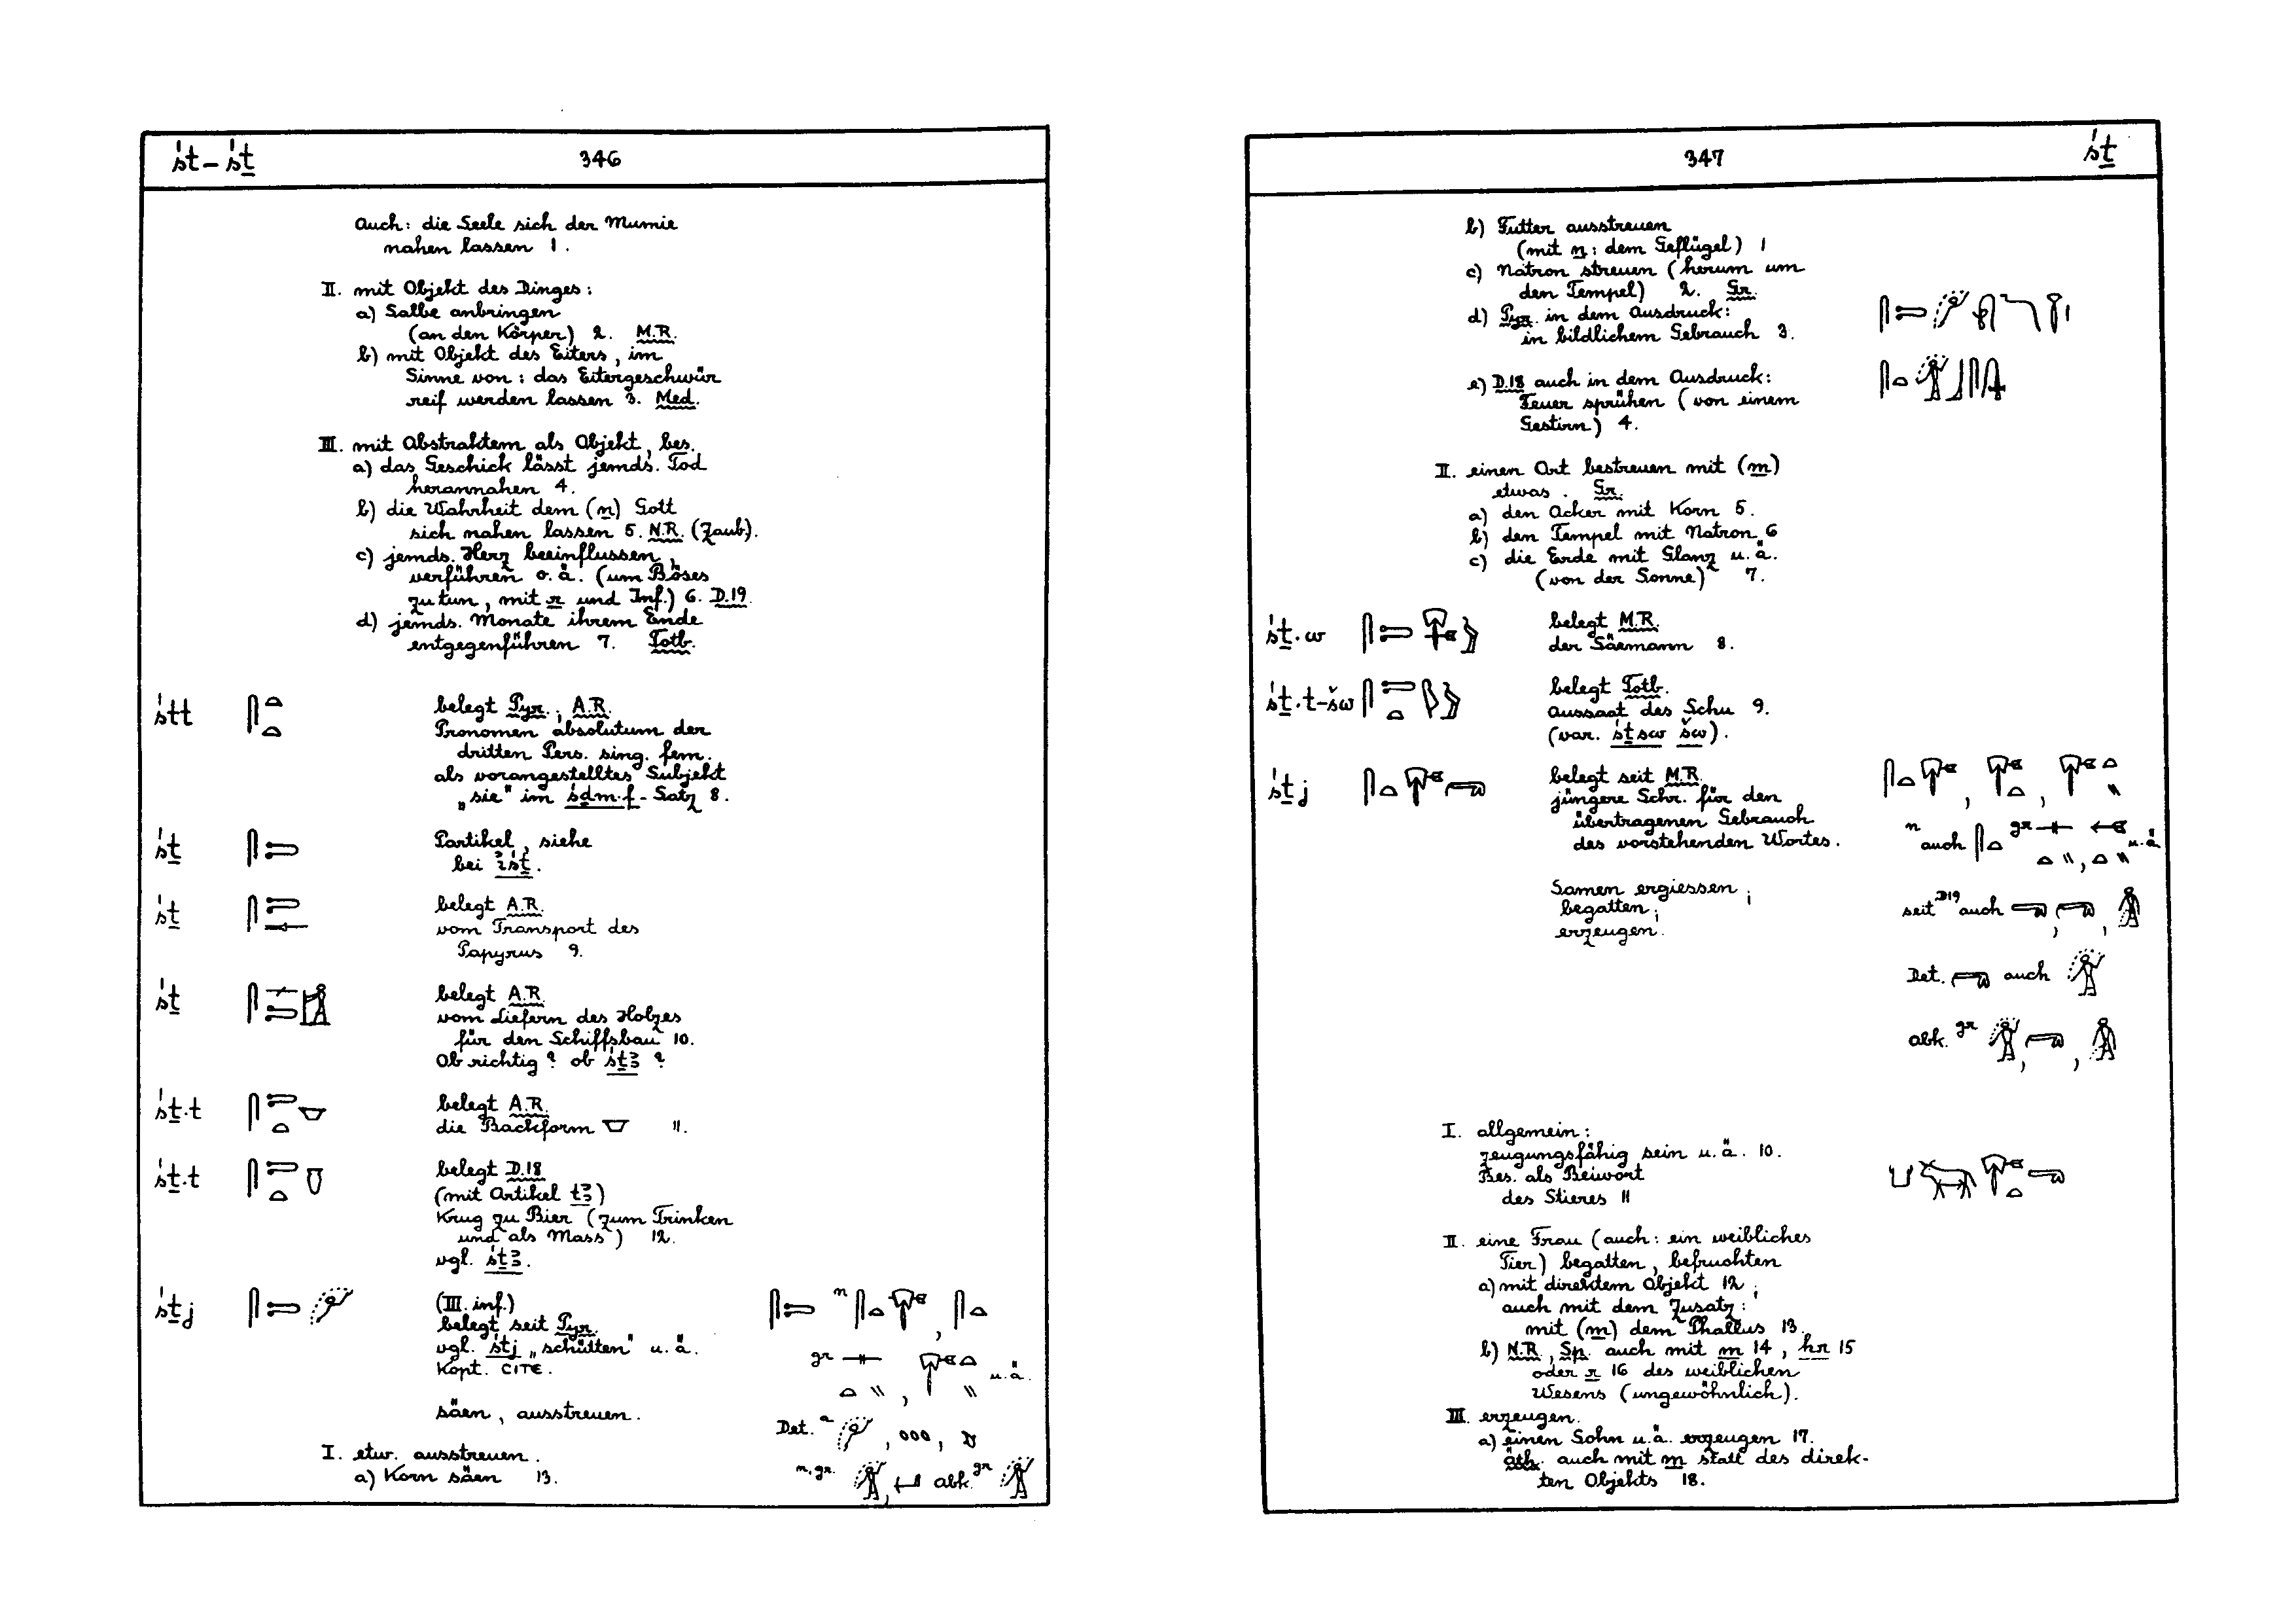 śt – śṯ
346
Auch: die Seele sich der Mumie
nahen lassen 1.
II. mit Objekt des Dinges:
a) Salbe anbringen
(an den Körper) 2. M.R.
b) mit Objekt des Eiters, im
Sinne von: das Eitergeschwür
reif werden lassen 3. Med.
III. mit Abstraktem als Objekt, bes.
a) das Geschick lässt jemds. Tod
herannahen 4.
b) die Wahrheit dem (n) Gott
sich nahen lassen 5. N.R. (Zaub.).
c) jemds. Herz beeinflussen,
verführen o.ä. (um Böses
zu tun, mit r und Inf.) 6. D.19.
d) jemds. Monate ihrem Ende
entgegenführen 7. Totb.
śtt
belegt Pyr., A.R.
Pronomen absolutum der
dritten Pers. sing. fem.
als vorangestelltes Subjekt
„sie" im śḏm.f - Satz 8.
śṯ
Partikel, siehe
bei ꞽśṯ.
śṯ
belegt A.R.
vom Transport des
Papyrus 9.
śṯ
belegt A.R.
vom Liefern des Holzes
für den Schiffsbau 10.
Ob richtig? ob śṯꜣ ?
śṯ.t
belegt A.R.
die Backform 11.
śṯ.t
belegt D.18
(mit Artikel tꜣ)
Krug zu Bier (zum Trinken
und als Mass) 12.
vgl. śṯꜣ.
śṯj
(III. inf.)
belegt seit Pyr.
vgl. śtj „schütten" u.ä.
Kopt. ⲥⲓⲧⲉ.
n
gr
u.ä.
säen, ausstreuen.
Det. a
I. etw. ausstreuen.
a) Korn säen 13.
n. gr. abk. gr
347
śṯ
b) Futter ausstreuen
(mit n: dem Geflügel) 1
c) Natron streuen (herum um
den Tempel) 2. Gr.
d) Pyr. in dem Ausdruck:
in bildlichem Gebrauch 3.
e) D.18 auch in dem Ausdruck:
Feuer sprühen (von einem
Gestirn) 4.
II. einen Ort bestreuen mit (m)
etwas. Gr.
a) den Acker mit Korn 5.
b) den Tempel mit Natron 6
c) die Erde mit Glanz u.ä.
(von der Sonne) 7.
śṯ.w
belegt M.R.
der Säemann 8.
śṯ.t-šw
belegt Totb.
Aussaat des Schu 9.
(var. śṯsw šw).
śṯj
belegt seit M.R.
jüngere Schr. für den
übertragenen Gebrauch
des vorstehenden Wortes.
n auch gr u.ä.
Samen ergiessen;
begatten;
erzeugen.
seit D19 auch
Det. auch
abk. gr
I. allgemein:
zeugungsfähig sein u.ä. 10.
Bes. als Beiwort
des Stieres 11
II. eine Frau (auch: ein weibliches
Tier) begatten, befruchten
a) mit direktem Objekt 12;
auch mit dem Zusatz:
mit (m) dem Phallus 13.
b) N.R., Sp. auch mit m 14, ḥr 15
oder r 16 des weiblichen
Wesens (ungewöhnlich).
III. erzeugen.
a) einen Sohn u.ä. erzeugen 17.
äth. auch mit m statt des direk-
ten Objekts 18.